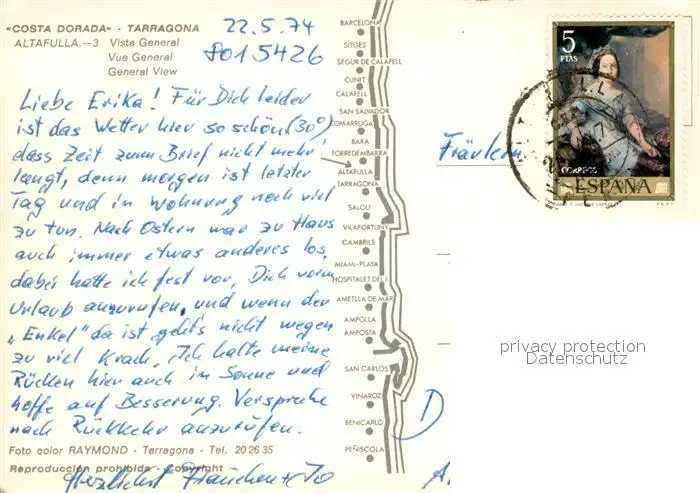 "COSTA DORADA" - TARRAGONA
ALTAFULLA.—3 Vista General
Vue General
General View
22.5.74
8015426
Liebe Erika! Für Dich leider
ist das Wetter hier so schön (30°)
dass Zeit zum Brief nicht mehr
langt, denn morgen ist letzter
Tag und in Wohnung noch viel
zu tun. Nach Ostern war zu Haus
auch immer etwas anderes los,
dabei hatte ich fest vor, Dich vorm
Urlaub anzurufen, und wenn der
"Enkel" da ist geht's nicht wegen
zu viel Krach. Ich halte meine
Rücken hier auch in Sonne und
hoffe auf Besserung. Verspreche
nach Rückkehr anzurufen.
Foto color RAYMOND - Tarragona - Tel. 20 26 35
Reproducción prohibida - Copyright
Herzlichst
BARCELONA
SITGES
SEGUR DE CALAFELL
CUNIT
CALAFELL
SAN SALVADOR
COMARRUGA
BARA
TORREDEMBARRA
ALTAFULLA
TARRAGONA
SALOU
VILAFORTUNY
CAMBRILS
MIAMI-PLAYA
HOSPITALET DEL I.
AMETLLA DE MAR
AMPOLLA
AMPOSTA
SAN CARLOS
VINAROZ
BENICARLO
PEÑISCOLA
Fräulein
D
5
PTAS
CORREOS
ESPAÑA
privacy protection
Datenschutz